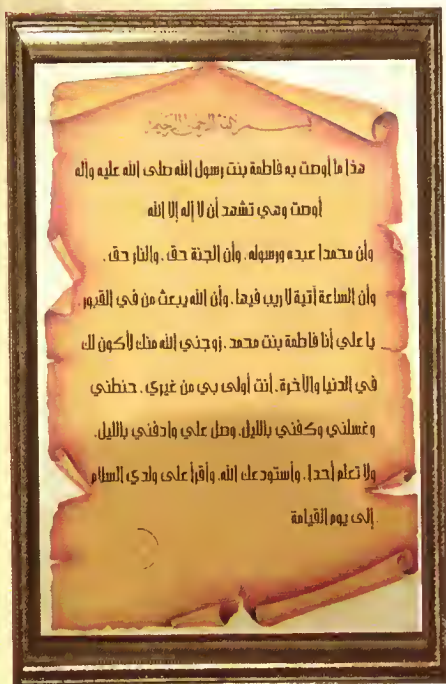 بسم الله الرحمن الرحيم
هذا ما أوصت به فاطمة بنت رسول الله صلى الله عليه وآله
أوصت وهي تشهد أن لا إله إلا الله
وأن محمدا عبده ورسوله . وأن الجنة حق . والنار حق .
وأن الساعة آتية لا ريب فيها . وأن الله يبعث من في القبور .
يا علي أنا فاطمة بنت محمد . زوجني الله منك لأكون لك
في الدنيا والآخرة . أنت أولى بي من غيري . حنطني
وغسلني وكفني بالليل . وصل علي وادفني بالليل .
ولا تعلم أحدا . وأستودعك الله . وأقرأ على ولدي السلام
إلى يوم القيامة .